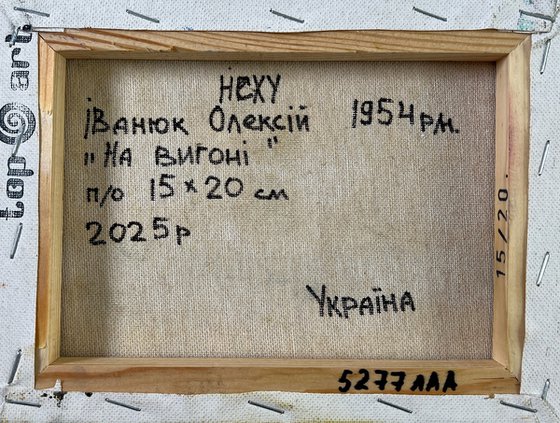 top art
НСХУ
іванюк Олексій 1954 р.н.
"На вигоні"
п/о 15×20 см
2025р
Україна
15/20.
5277ЛАА